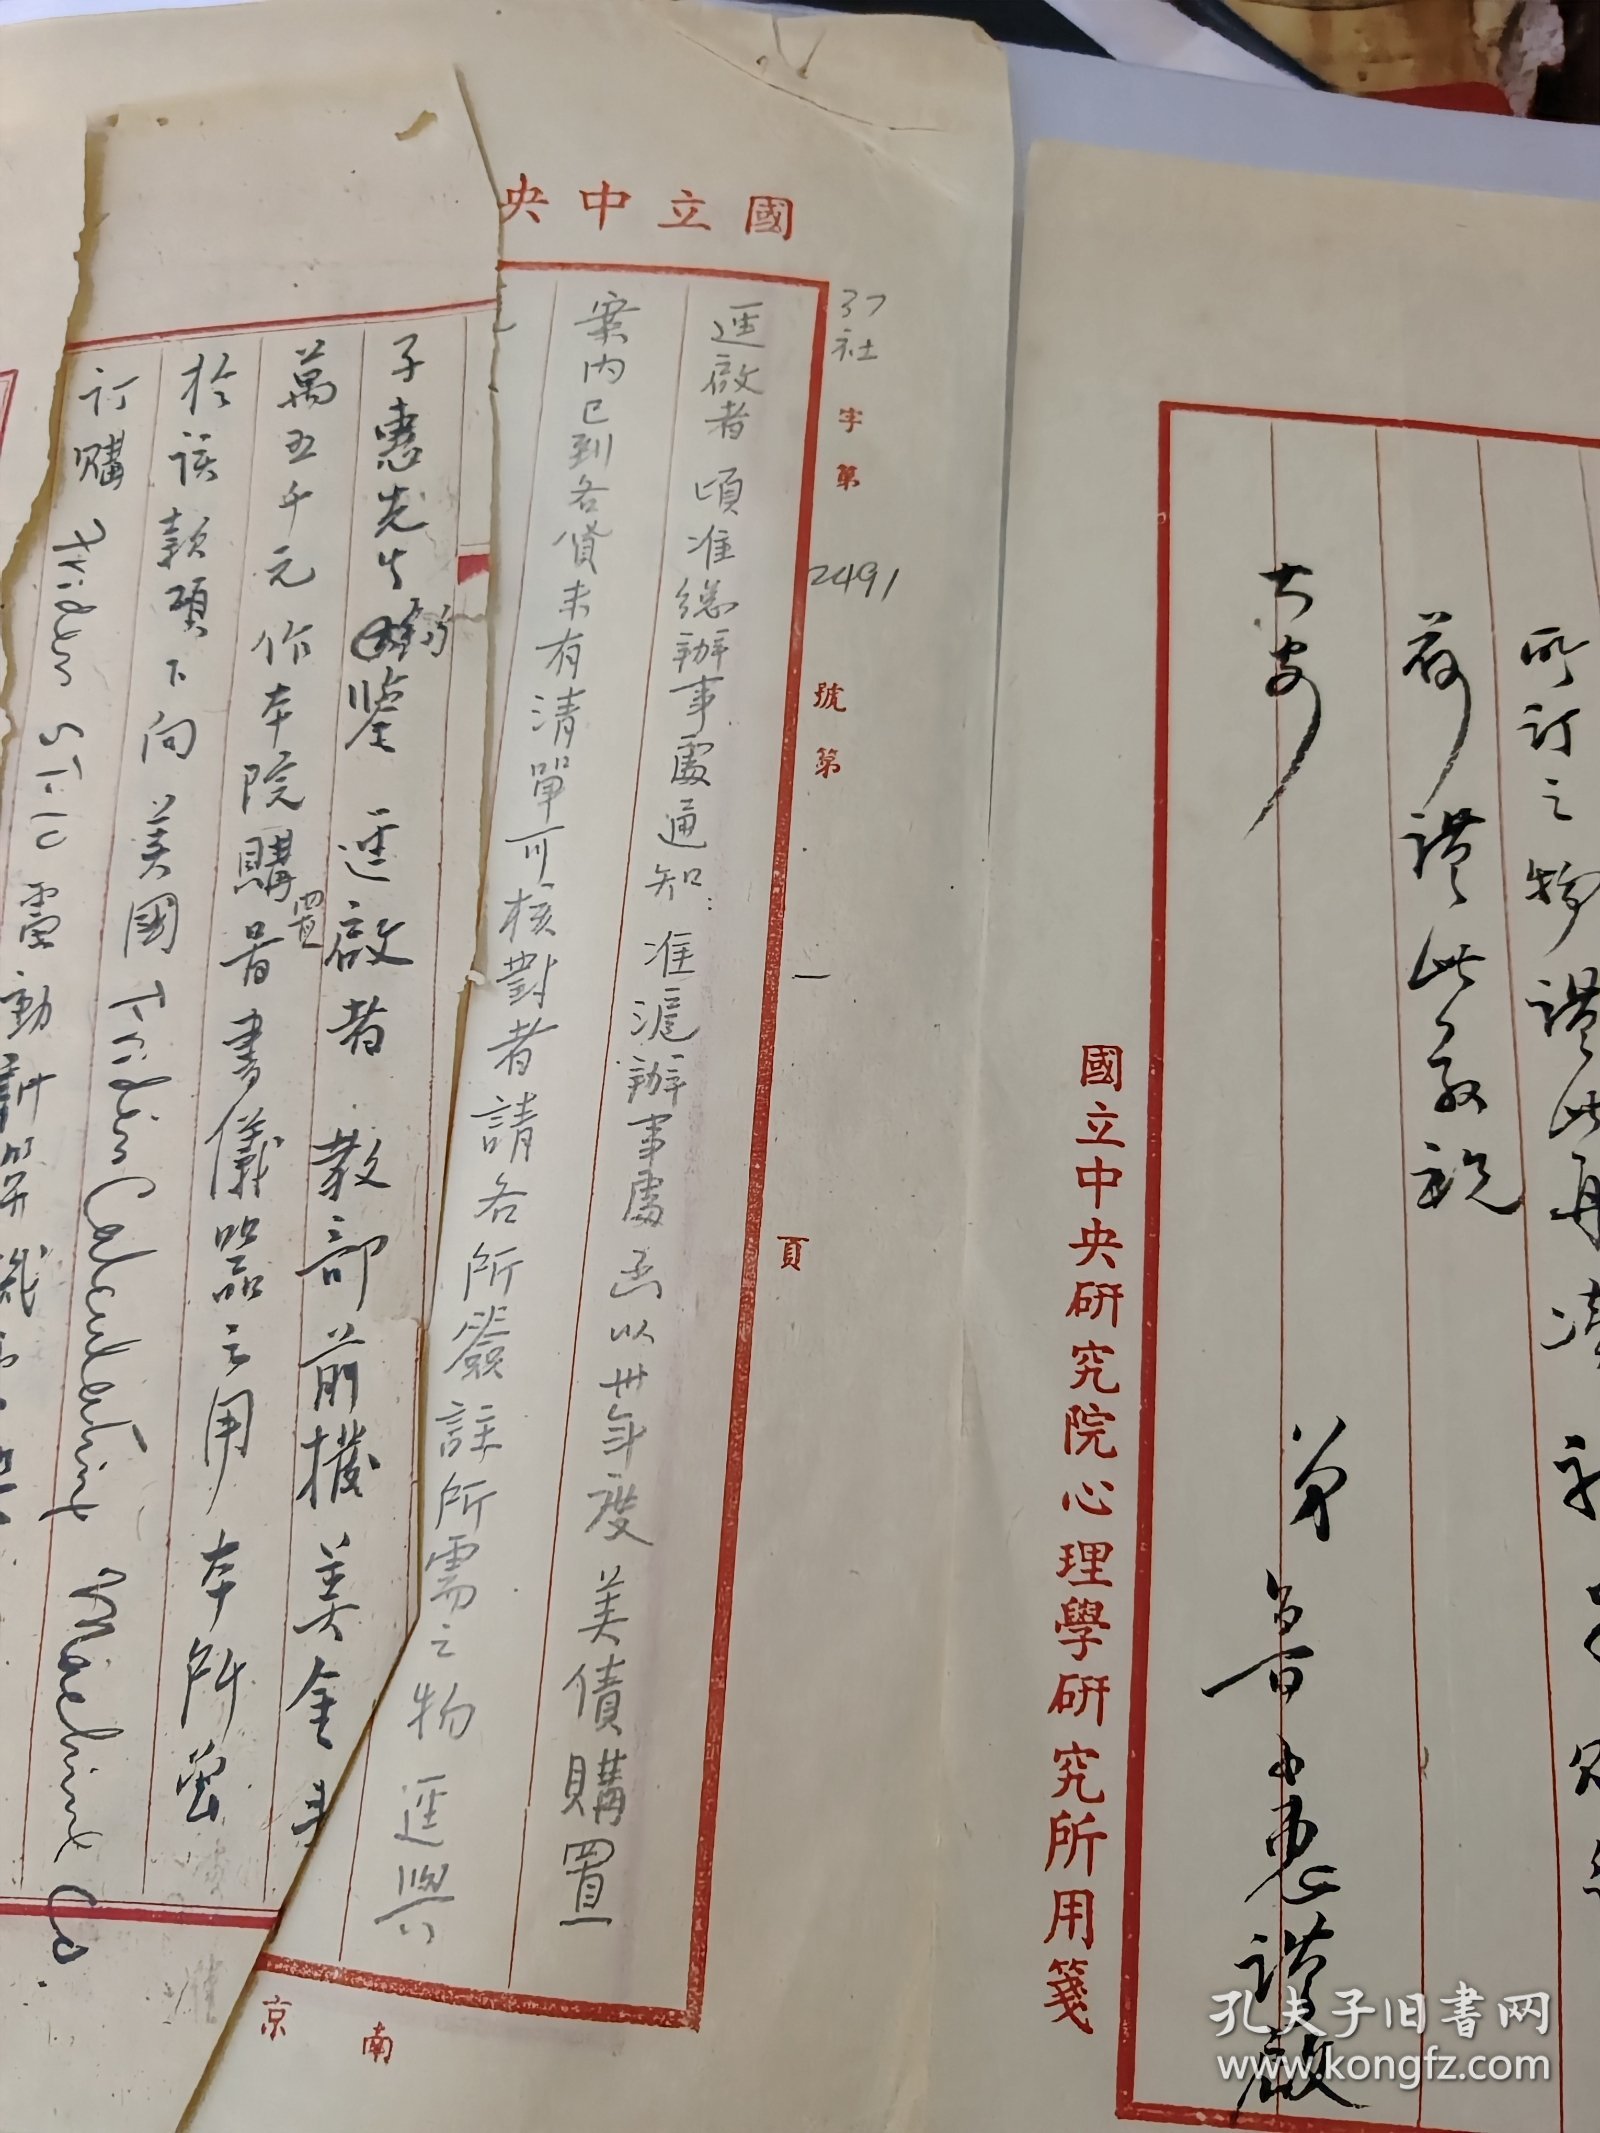 所訂之物謹此再
荷謹此敬祝
大安
弟
謹啟
國立中央研究院心理學研究所用箋
國立中央
37社字第2491號第一頁
逕啟者 頃准總辦事處通知：准滬辦事處函以卅年度美債購置
案內已到各貨未有清單可核對者請各所簽註所需之物逕與
南京
子惠先生 鑒 逕啟者 教部前撥美金
萬五千元作本院購置書儀器之用本所曾
於該款項下向美國 Friden Calculating Machine Co.
訂購 Friden ST-10 電動計算機
孔夫子旧书网
www.kongfz.com